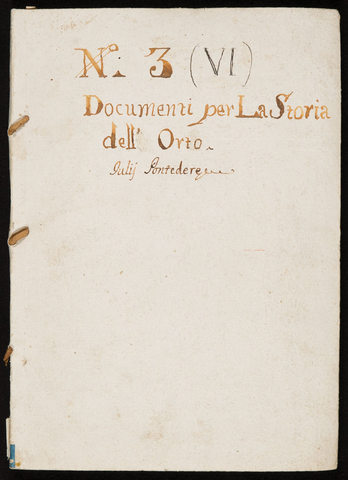 N.º 3 (VI)
Documenti per La Storia
dell' Orto.
Julij Pontederę